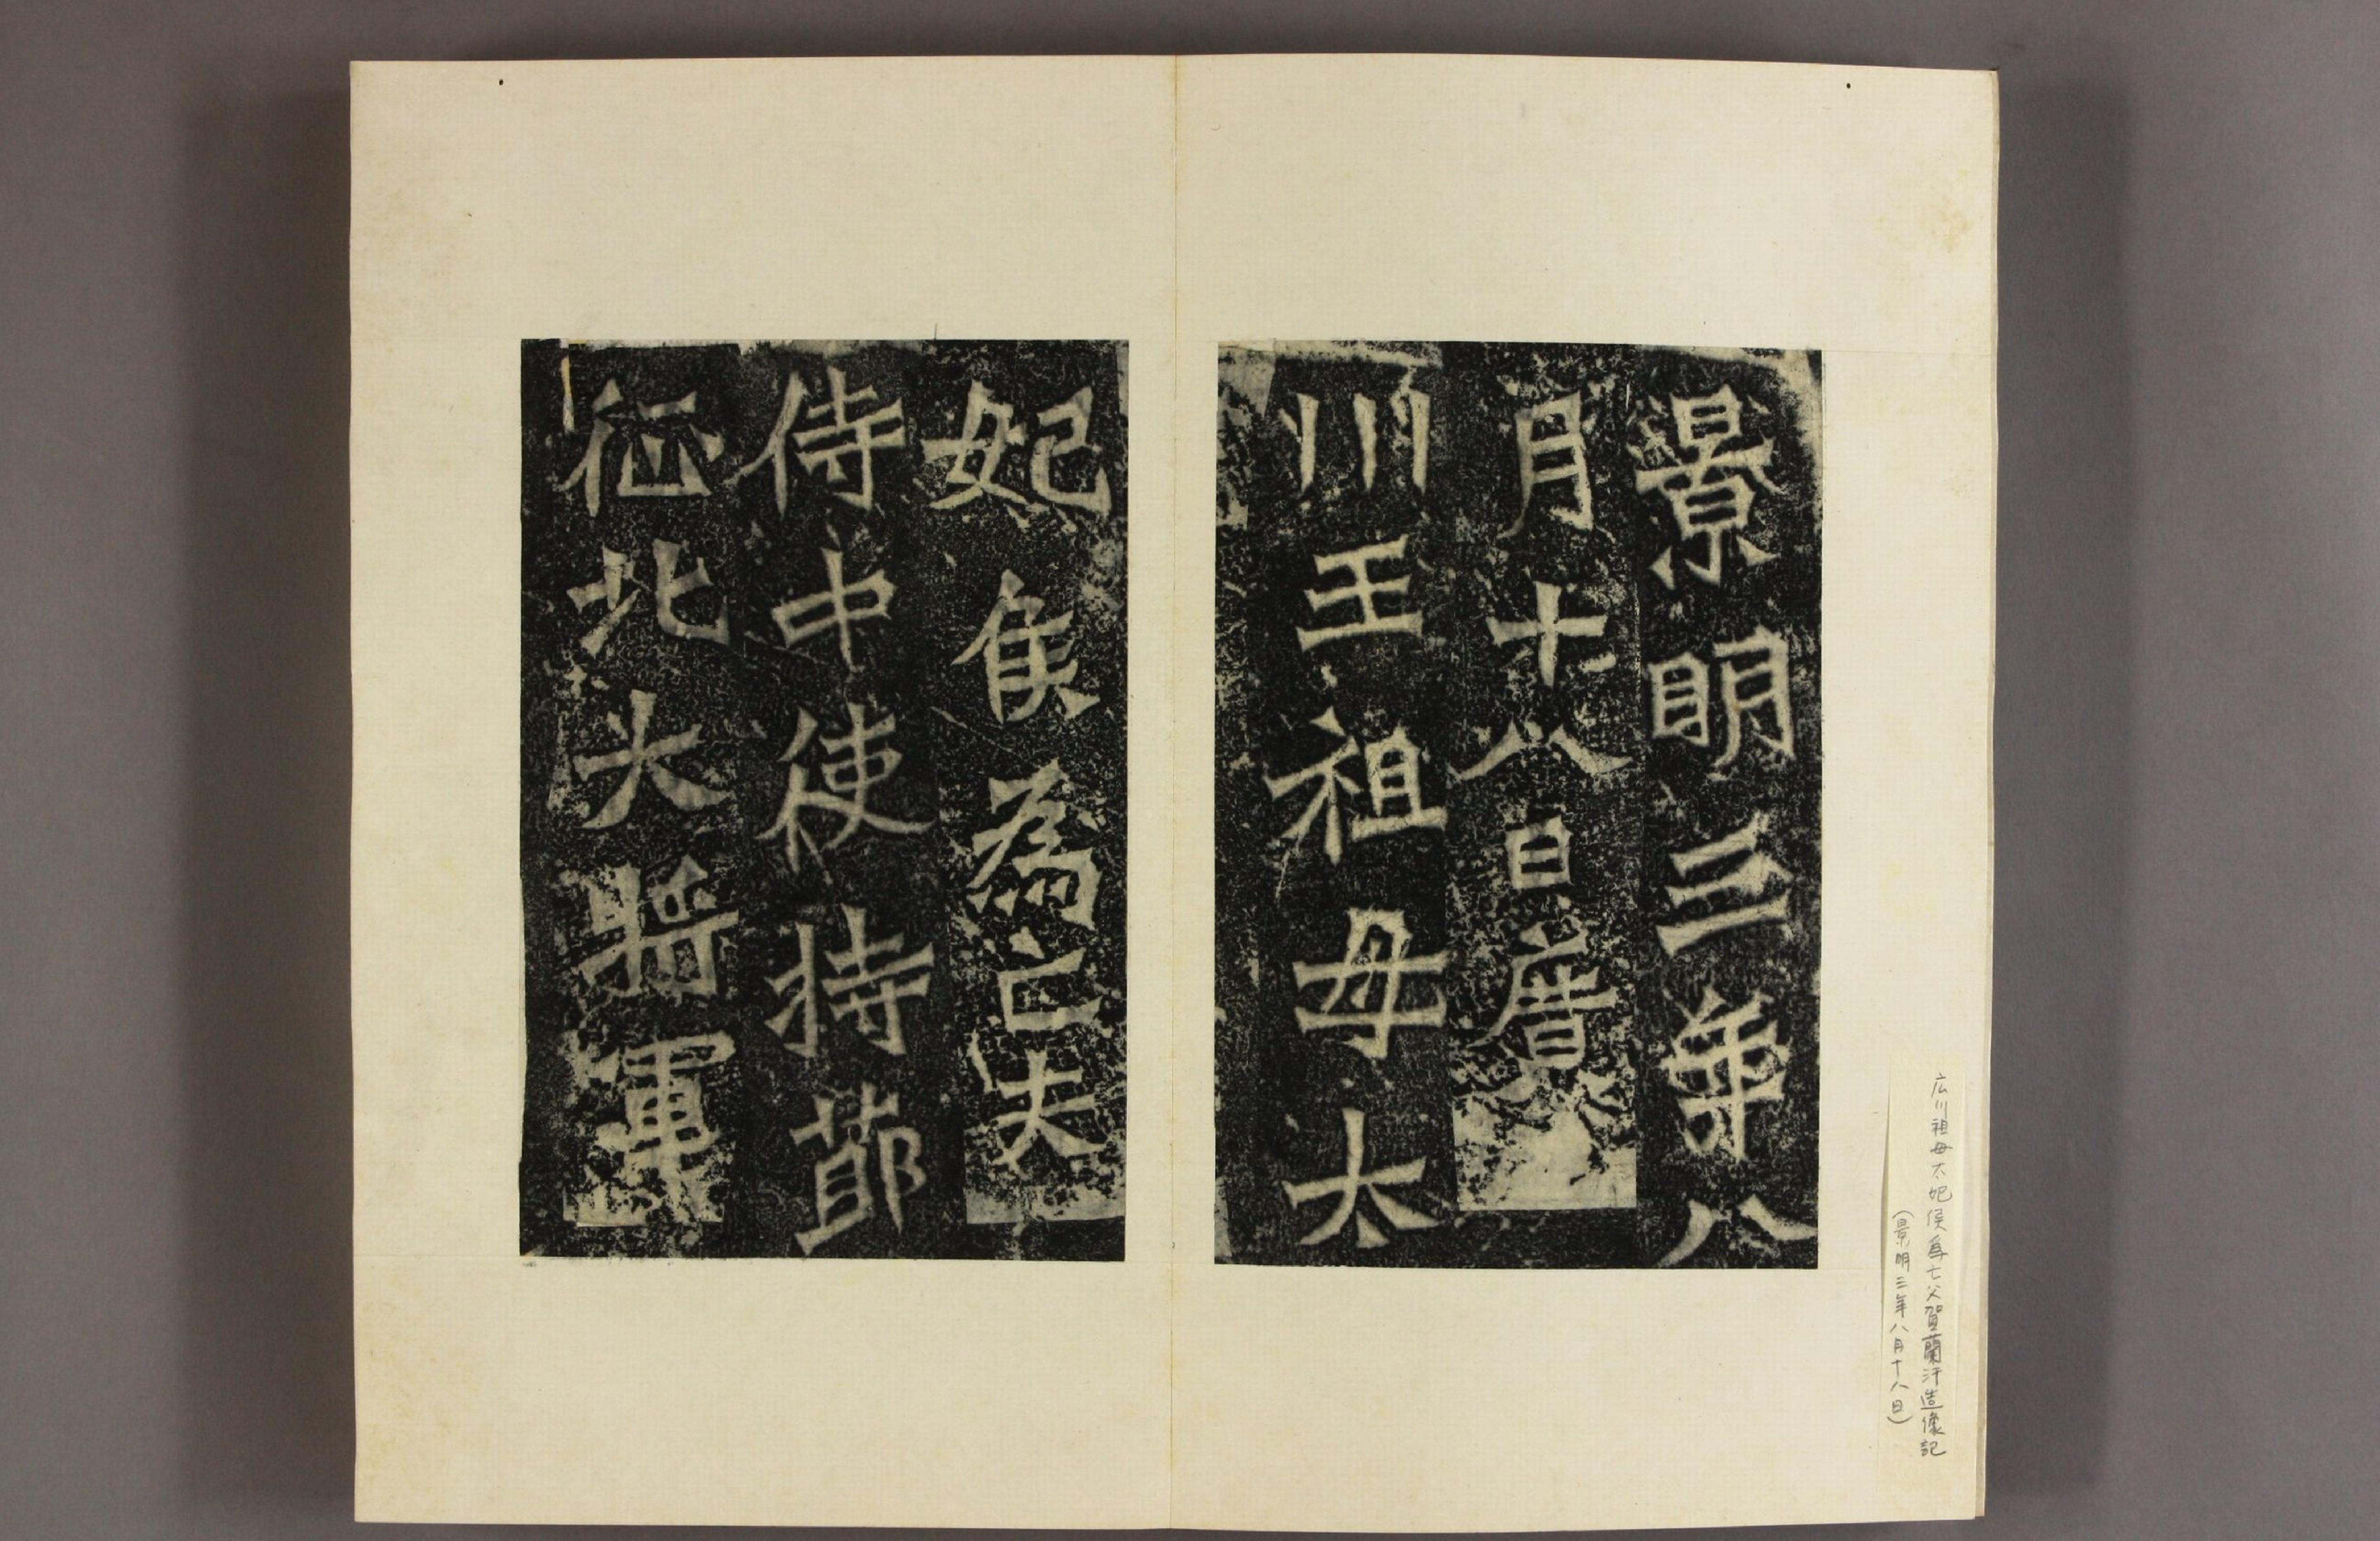 景明三年八
月十八日廣
川王祖母太
妃侯為亡夫
侍中使持節
征北大將軍
広川祖母太妃侯為亡父賀蘭汗造像記
(景明三年八月十八日)